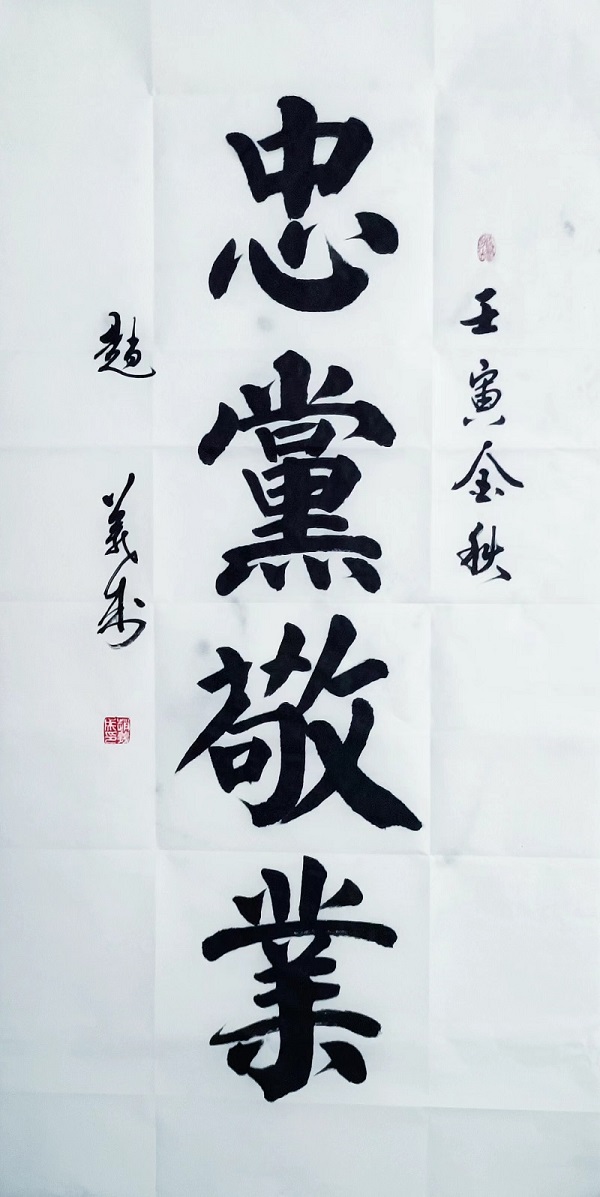 壬寅金秋
忠黨敬業
趙義